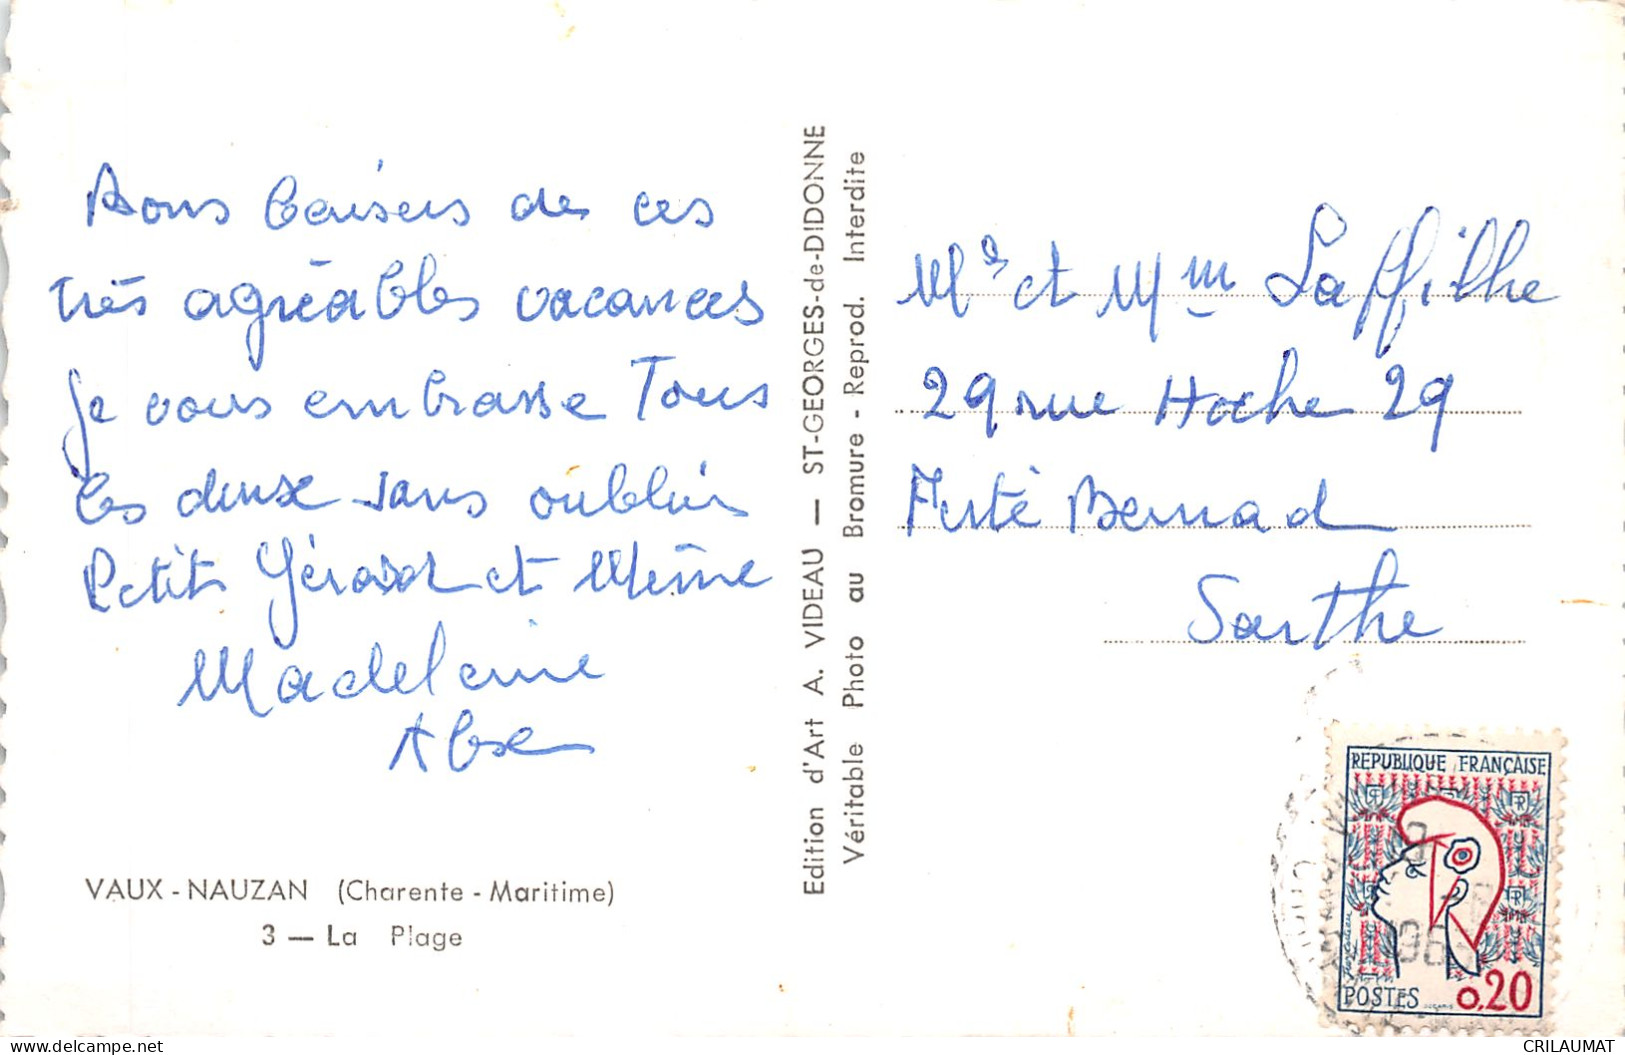 Bons baisers de ces
très agréables vacances
je vous embrasse Tous
les deux sans oublier
Petit Gérard et Mémé
Madeleine
VAUX - NAUZAN (Charente - Maritime)
3 — La Plage
Edition d'Art A. VIDEAU — ST-GEORGES-de-DIDONNE
Véritable Photo au Bromure - Reprod. Interdite
Mr et Mme Laffithe
29 rue Hoche 29
Ferté Bernad
Sarthe
REPUBLIQUE FRANÇAISE
POSTES 0,20
CRILAUMAT